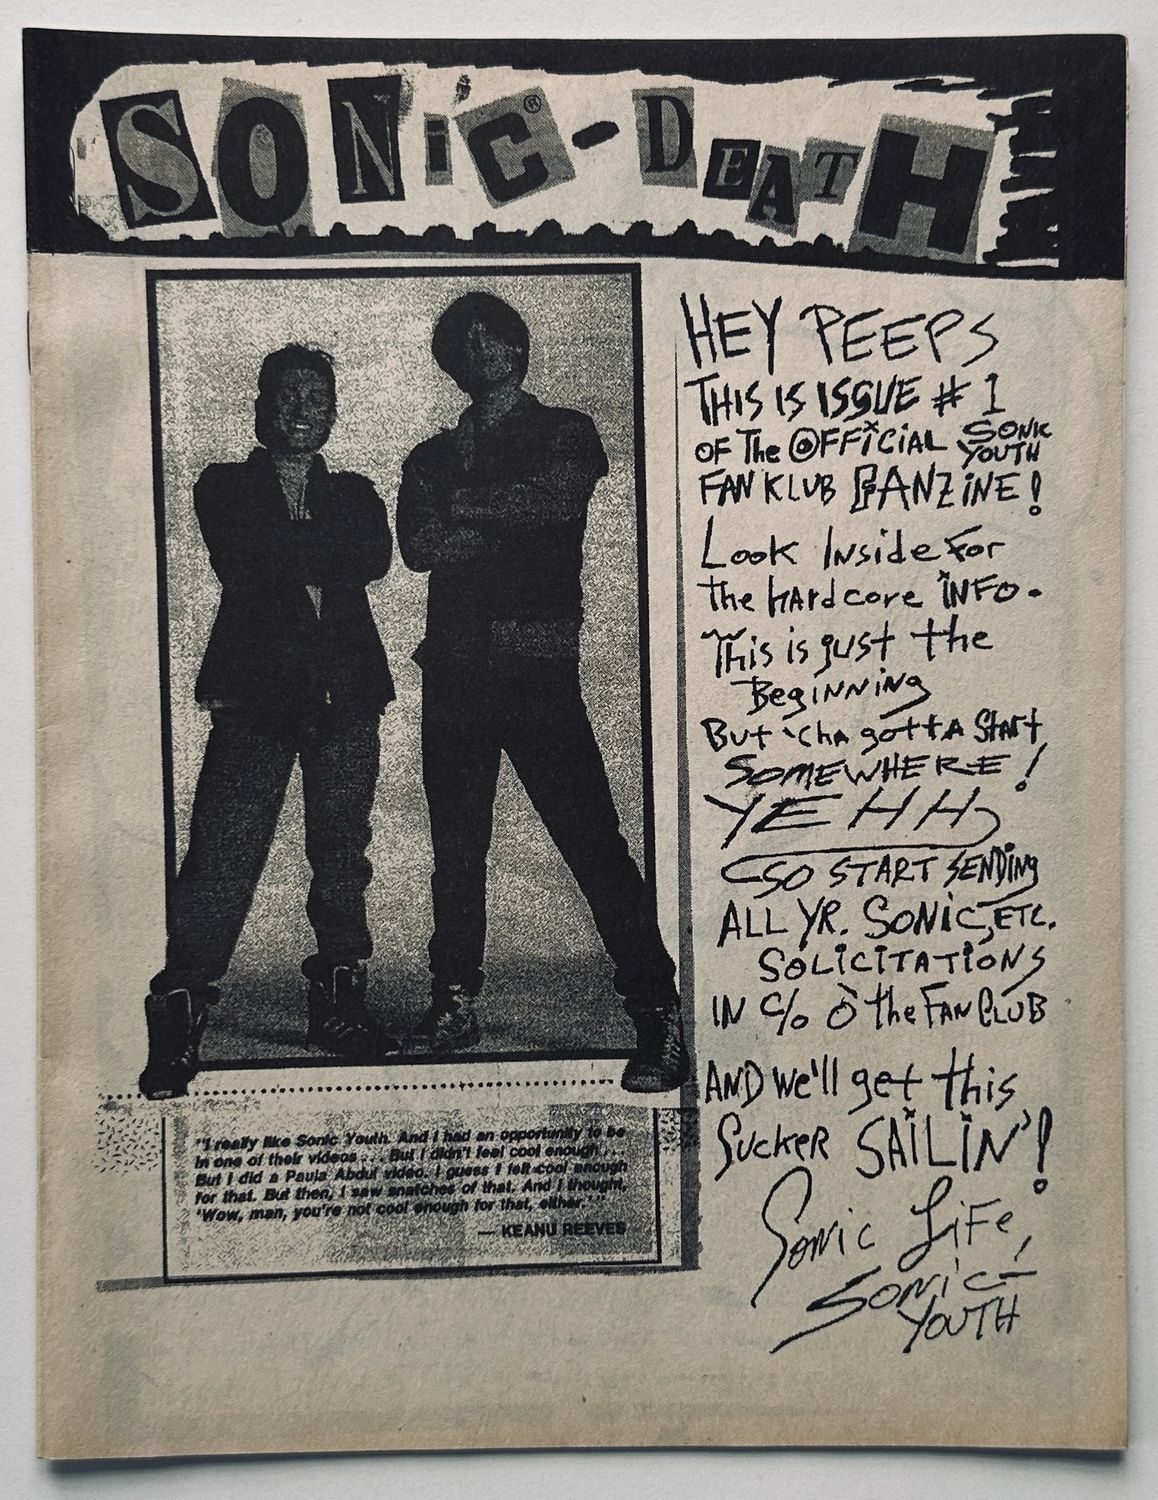 SONiC®-DEATH
HEY PEEPS
THIS IS ISSUE # 1
OF The OFFiCiAL SONIC YOUTH
FAN KLUB FANZiNE!
Look Inside For
the hardcore iNFO.
This is just the
Beginning
But 'cha gotta Start
SOMEWHERE!
YEHH,
SO START SENDing
ALL YR. SONiC, ETC.
SOLiCiTATiONS
IN c/o O the FAN CLUB
AND we'll get this
Sucker SAiLiN'!
Sonic LiFe,
Sonic-
YOUTH
"I really like Sonic Youth. And I had an opportunity to be
in one of their videos . . . But I didn't feel cool enough . . .
But I did a Paula Abdul video. I guess I felt cool enough
for that. But then, I saw snatches of that. And I thought,
'Wow, man, you're not cool enough for that, either.' "
— KEANU REEVES